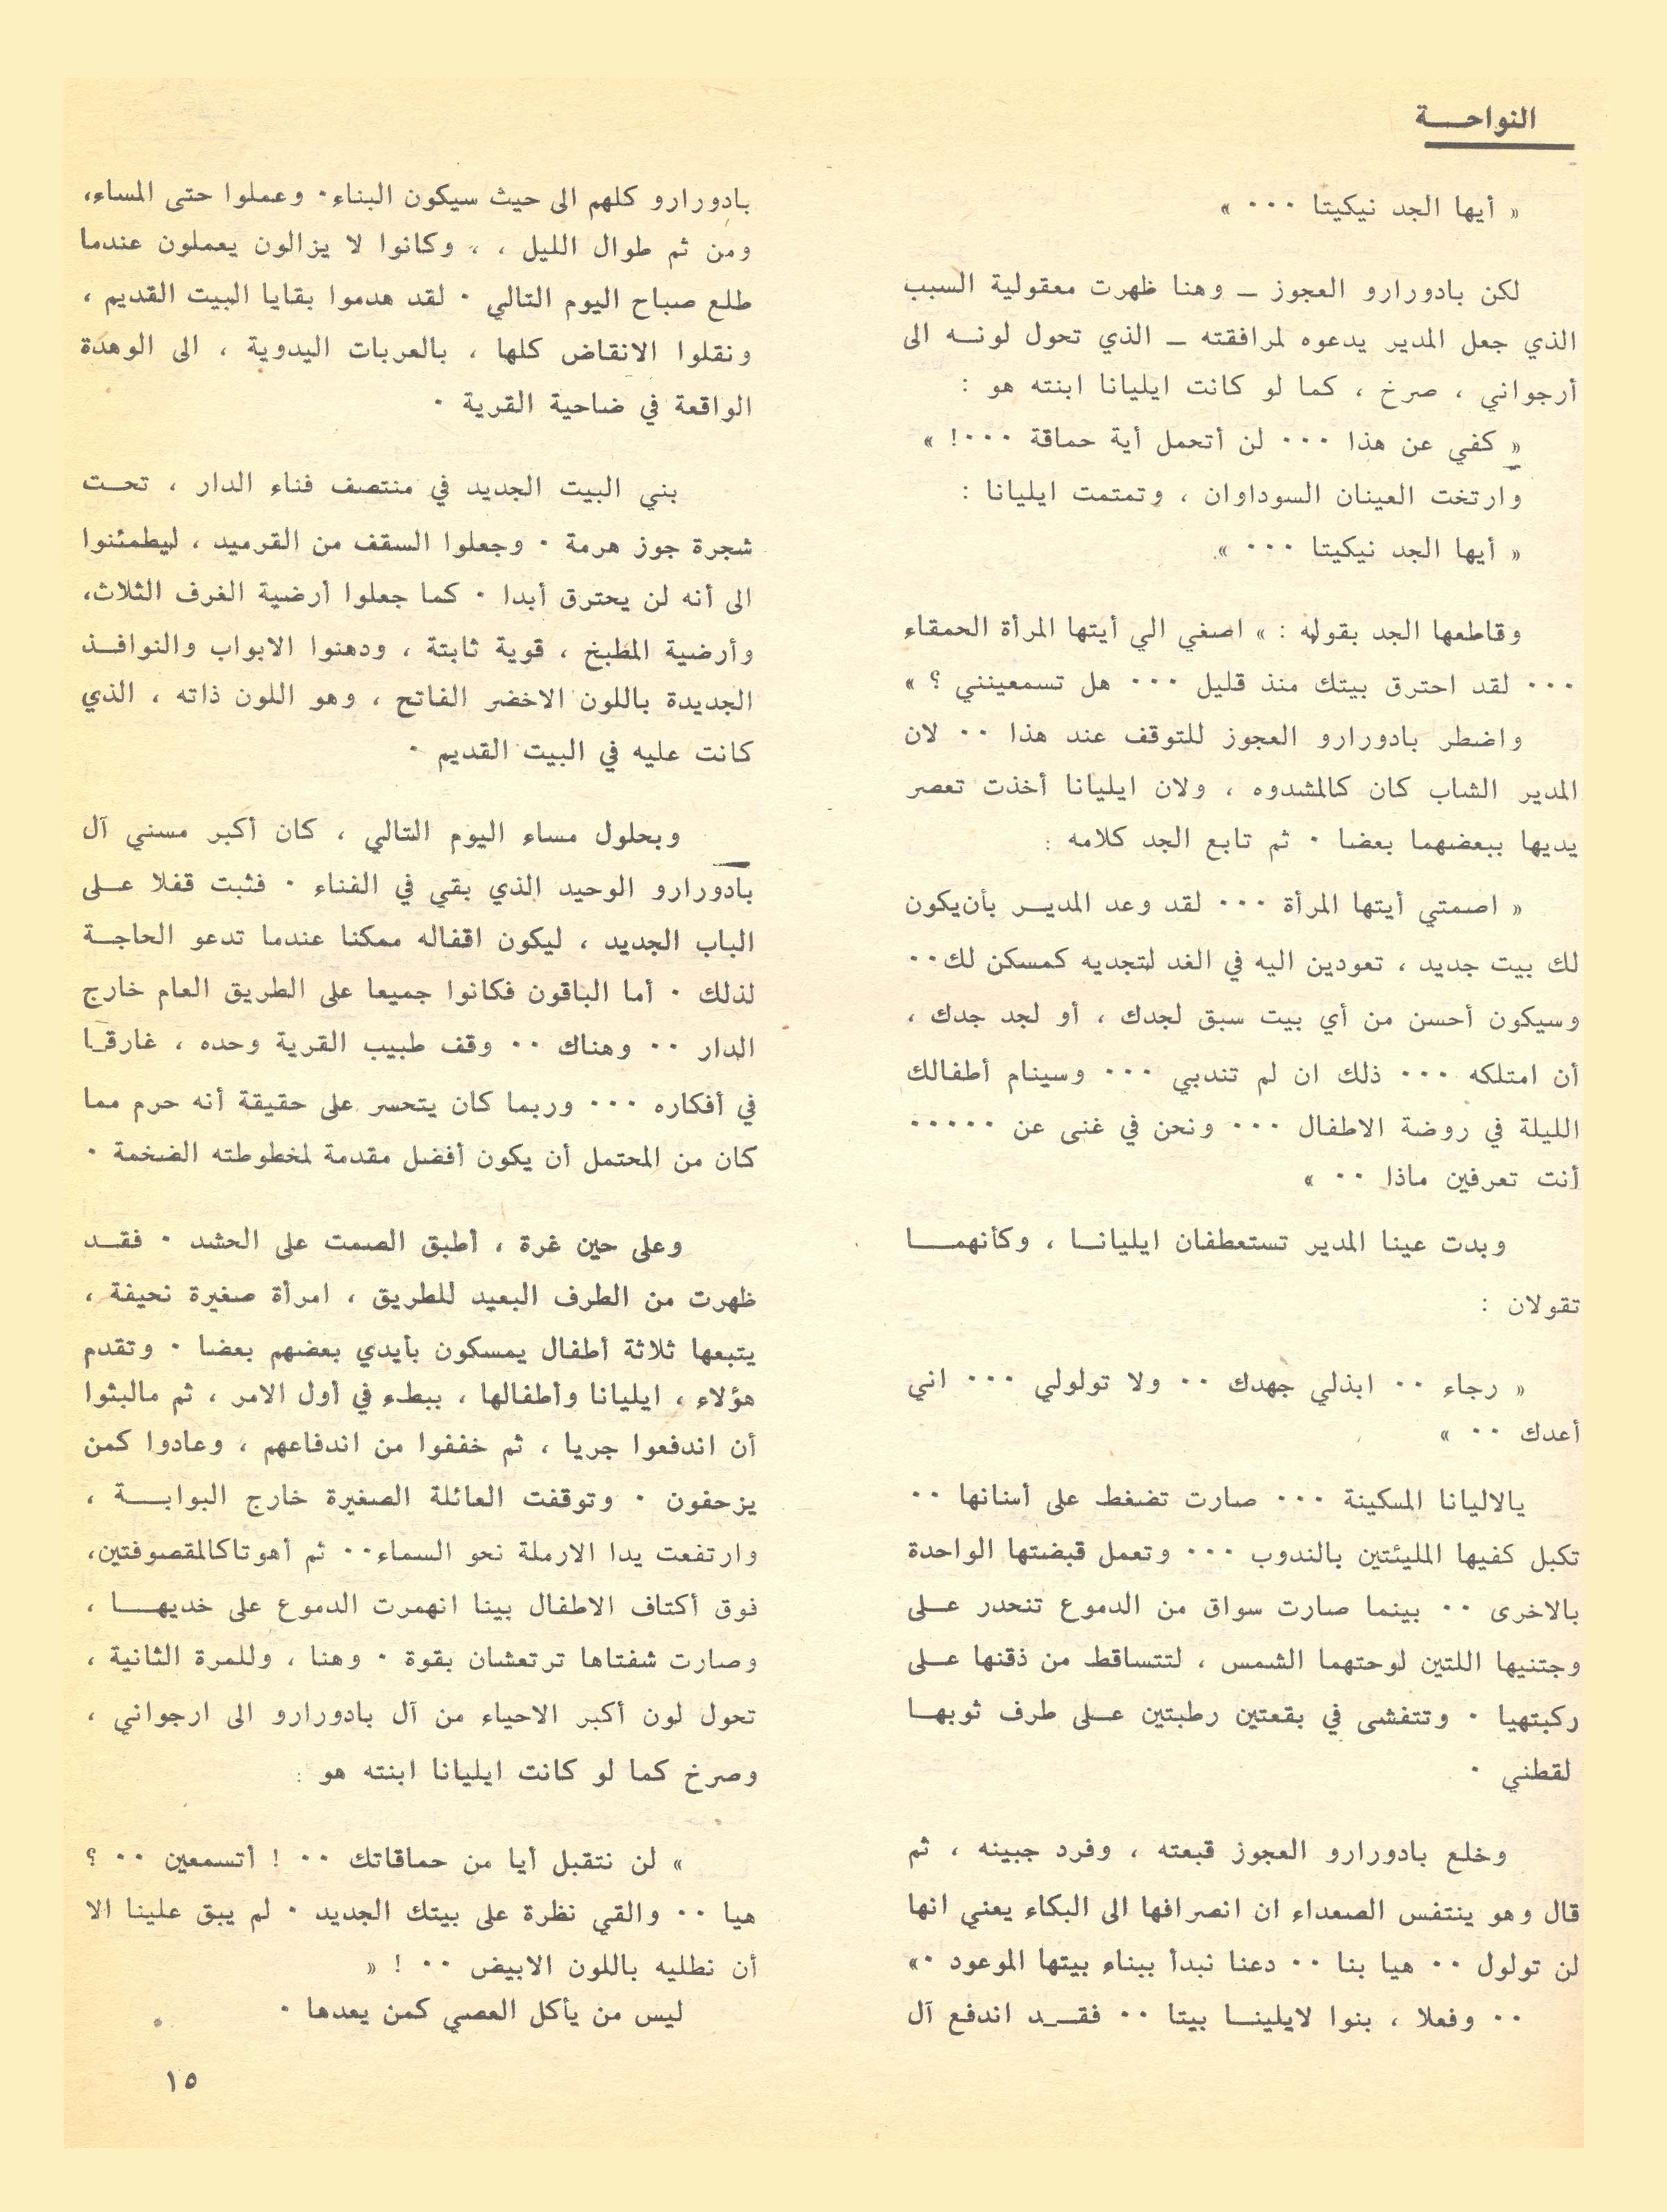 النواحـــة
« أيها الجد نيكيتا ٠٠٠ »
لكن بادورارو العجوز ـ وهنا ظهرت معقولية السبب
الذي جعل المدير يدعوه لمرافقته ـ الذي تحول لونـه الى
أرجواني ، صرخ ، كما لو كانت ايليانا ابنته هو :
« كفي عن هذا ٠٠٠ لن أتحمل أية حماقة ٠٠٠! »
وارتخت العينان السوداوان ، وتمتمت ايليانا :
« أيها الجد نيكيتا ٠٠٠ »
وقاطعها الجد بقوله : » اصغي الي أيتها المرأة الحمقاء
٠٠٠ لقد احترق بيتك منذ قليل ٠٠٠ هل تسمعينني ؟ »
واضطر بادورارو العجوز للتوقف عند هذا ٠٠ لان
المدير الشاب كان كالمشدوه ، ولان ايليانا أخذت تعصر
يديها ببعضهما بعضا ٠ ثم تابع الجد كلامه :
« اصمتي أيتها المرأة ٠٠٠ لقد وعد المديـر بأن‌يكون
لك بيت جديد ، تعودين اليه في الغد لتجديه كمسكن لك٠٠
وسيكون أحسن من أي بيت سبق لجدك ، أو لجد جدك ،
أن امتلكه ٠٠٠ ذلك ان لم تندبي ٠٠٠ وسينام أطفالك
الليلة في روضة الاطفال ٠٠٠ ونحن في غنى عن ٠٠٠٠٠
أنت تعرفين ماذا ٠٠ »
وبدت عينا المدير تستعطفان ايليانـا ، وكأنهمـــا
تقولان :
« رجاء ٠٠ ابذلي جهدك ٠٠ ولا تولولي ٠٠٠ اني
أعدك ٠٠ »
يالاليانا المسكينة ٠٠٠ صارت تضغط على أسنانها ٠٠
تكبل كفيها المليئتين بالندوب ٠٠٠ وتعمل قبضتها الواحدة
بالاخرى ٠٠ بينما صارت سواق من الدموع تنحدر عـلى
وجتنيها اللتين لوحتهما الشمس ، لتتساقط من ذقنها عـلى
ركبتهيا ٠ وتتفشى في بقعتين رطبتين عـلى طرف ثوبهـا
لقطني ٠
وخلع بادورارو العجوز قبعته ، وفرد جبينه ، ثم
قال وهو ينتفس الصعداء ان انصرافها الى البكاء يعني انها
لن تولول ٠٠ هيا بنا ٠٠ دعنا نبدأ ببناء بيتها الموعود ٠»
٠٠ وفعلا ، بنوا لايلينـا بيتا ٠٠ فقـد اندفع آل
بادورارو كلهم الى حيث سيكون البناء٠ وعملوا حتى المساء،
ومن ثم طوال الليل ، ، وكانوا لا يزالون يعملون عندما
طلع صباح اليوم التالي ٠ لقد هدموا بقايا البيت القديم ،
ونقلوا الانقاض كلها ، بالعربات اليدوية ، الى الوهدة
الواقعة في ضاحية القرية ٠
بني البيت الجديد في منتصف فناء الدار ، تحـت
شجرة جوز هرمة ٠ وجعلوا السقف من القرميد ، ليطمئنوا
الى أنه لن يحترق أبدا ٠ كما جعلوا أرضية الغرف الثلاث،
وأرضية المطبخ ، قوية ثابتة ، ودهنوا الابواب والنوافـذ
الجديدة باللون الاخضر الفاتح ، وهو اللون ذاته ، الذي
كانت عليه في البيت القديم ٠
وبحلول مساء اليوم التالي ، كان أكبر مسني آل
بادورارو الوحيد الذي بقي في الفناء ٠ فثبت قفلا عـلى
الباب الجديد ، ليكون اقفاله ممكنا عندما تدعو الحاجـة
لذلك ٠ أما الباقون فكانوا جميعا على الطريق العام خارج
الدار ٠٠ وهناك ٠٠ وقف طبيب القرية وحده ، غارقـا
في أفكاره ٠٠٠ وربما كان يتحسر على حقيقة أنه حرم مما
كان من المحتمل أن يكون أفضل مقدمة لمخطوطته الضخمة ٠
وعلى حين غرة ، أطبق الصمت على الحشد ٠ فقـد
ظهرت من الطرف البعيد للطريق ، امرأة صغيرة نحيفة ،
يتبعها ثلاثة أطفال يمسكون بأيدي بعضهم بعضا ٠ وتقدم
هؤلاء ، ايليانا وأطفالها ، ببطء في أول الامر ، ثم مالبثوا
أن اندفعوا جريا ، ثم خففوا من اندفاعهم ، وعادوا كمن
يزحفون ٠ وتوقفت العائلة الصغيرة خارج البوابــة ،
وارتفعت يدا الارملة نحو السماء٠٠ ثم أهوتاكالمقصوفتين،
فوق أكتاف الاطفال بينا انهمرت الدموع على خديهــا ،
وصارت شفتاها ترتعشان بقوة ٠ وهنا ، وللمرة الثانية ،
تحول لون أكبر الاحياء من آل بادورارو الى ارجواني ،
وصرخ كما لو كانت ايليانا ابنته هو :
» لن نتقبل أيا من حماقاتك ٠٠ ! أتسمعين ٠٠ ؟
هيا ٠٠ والقي نظرة على بيتك الجديد ٠ لم يبق علينا الا
أن نطليه باللون الابيض ٠٠ ! «
ليس من يأكل العصي كمن يعدها ٠
١٥